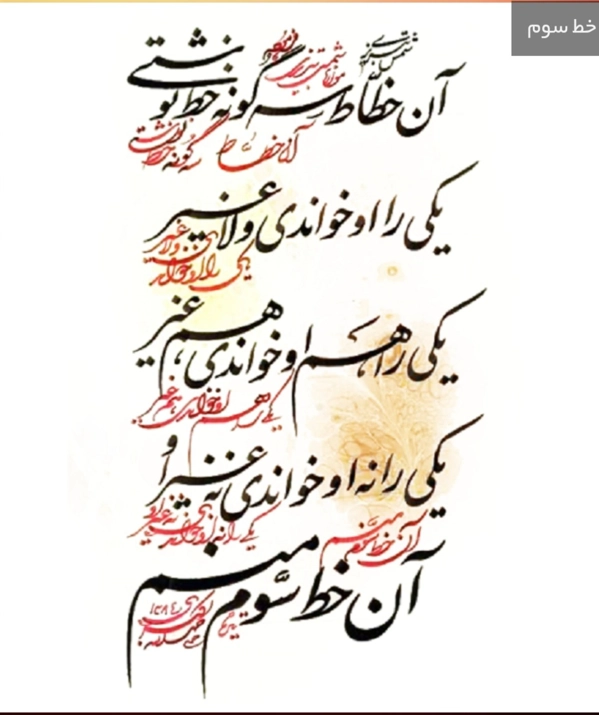 خط سوم
شمس تبریزی
آن خطاط سه گونه خط نوشتی
آن خطاط سه گونه خط نوشتی
یکی را او خواندی و لا غیر
یکی را او خواندی و لا غیر
یکی را هم او خواندی، هم غیر
یکی را هم او خواندی هم غیر
یکی را نه او خواندی نه غیر او
یکی را نه او خواندی نه غیر او
آن خط سوم منم
آن خط سوّم منم
۱۳۸۴